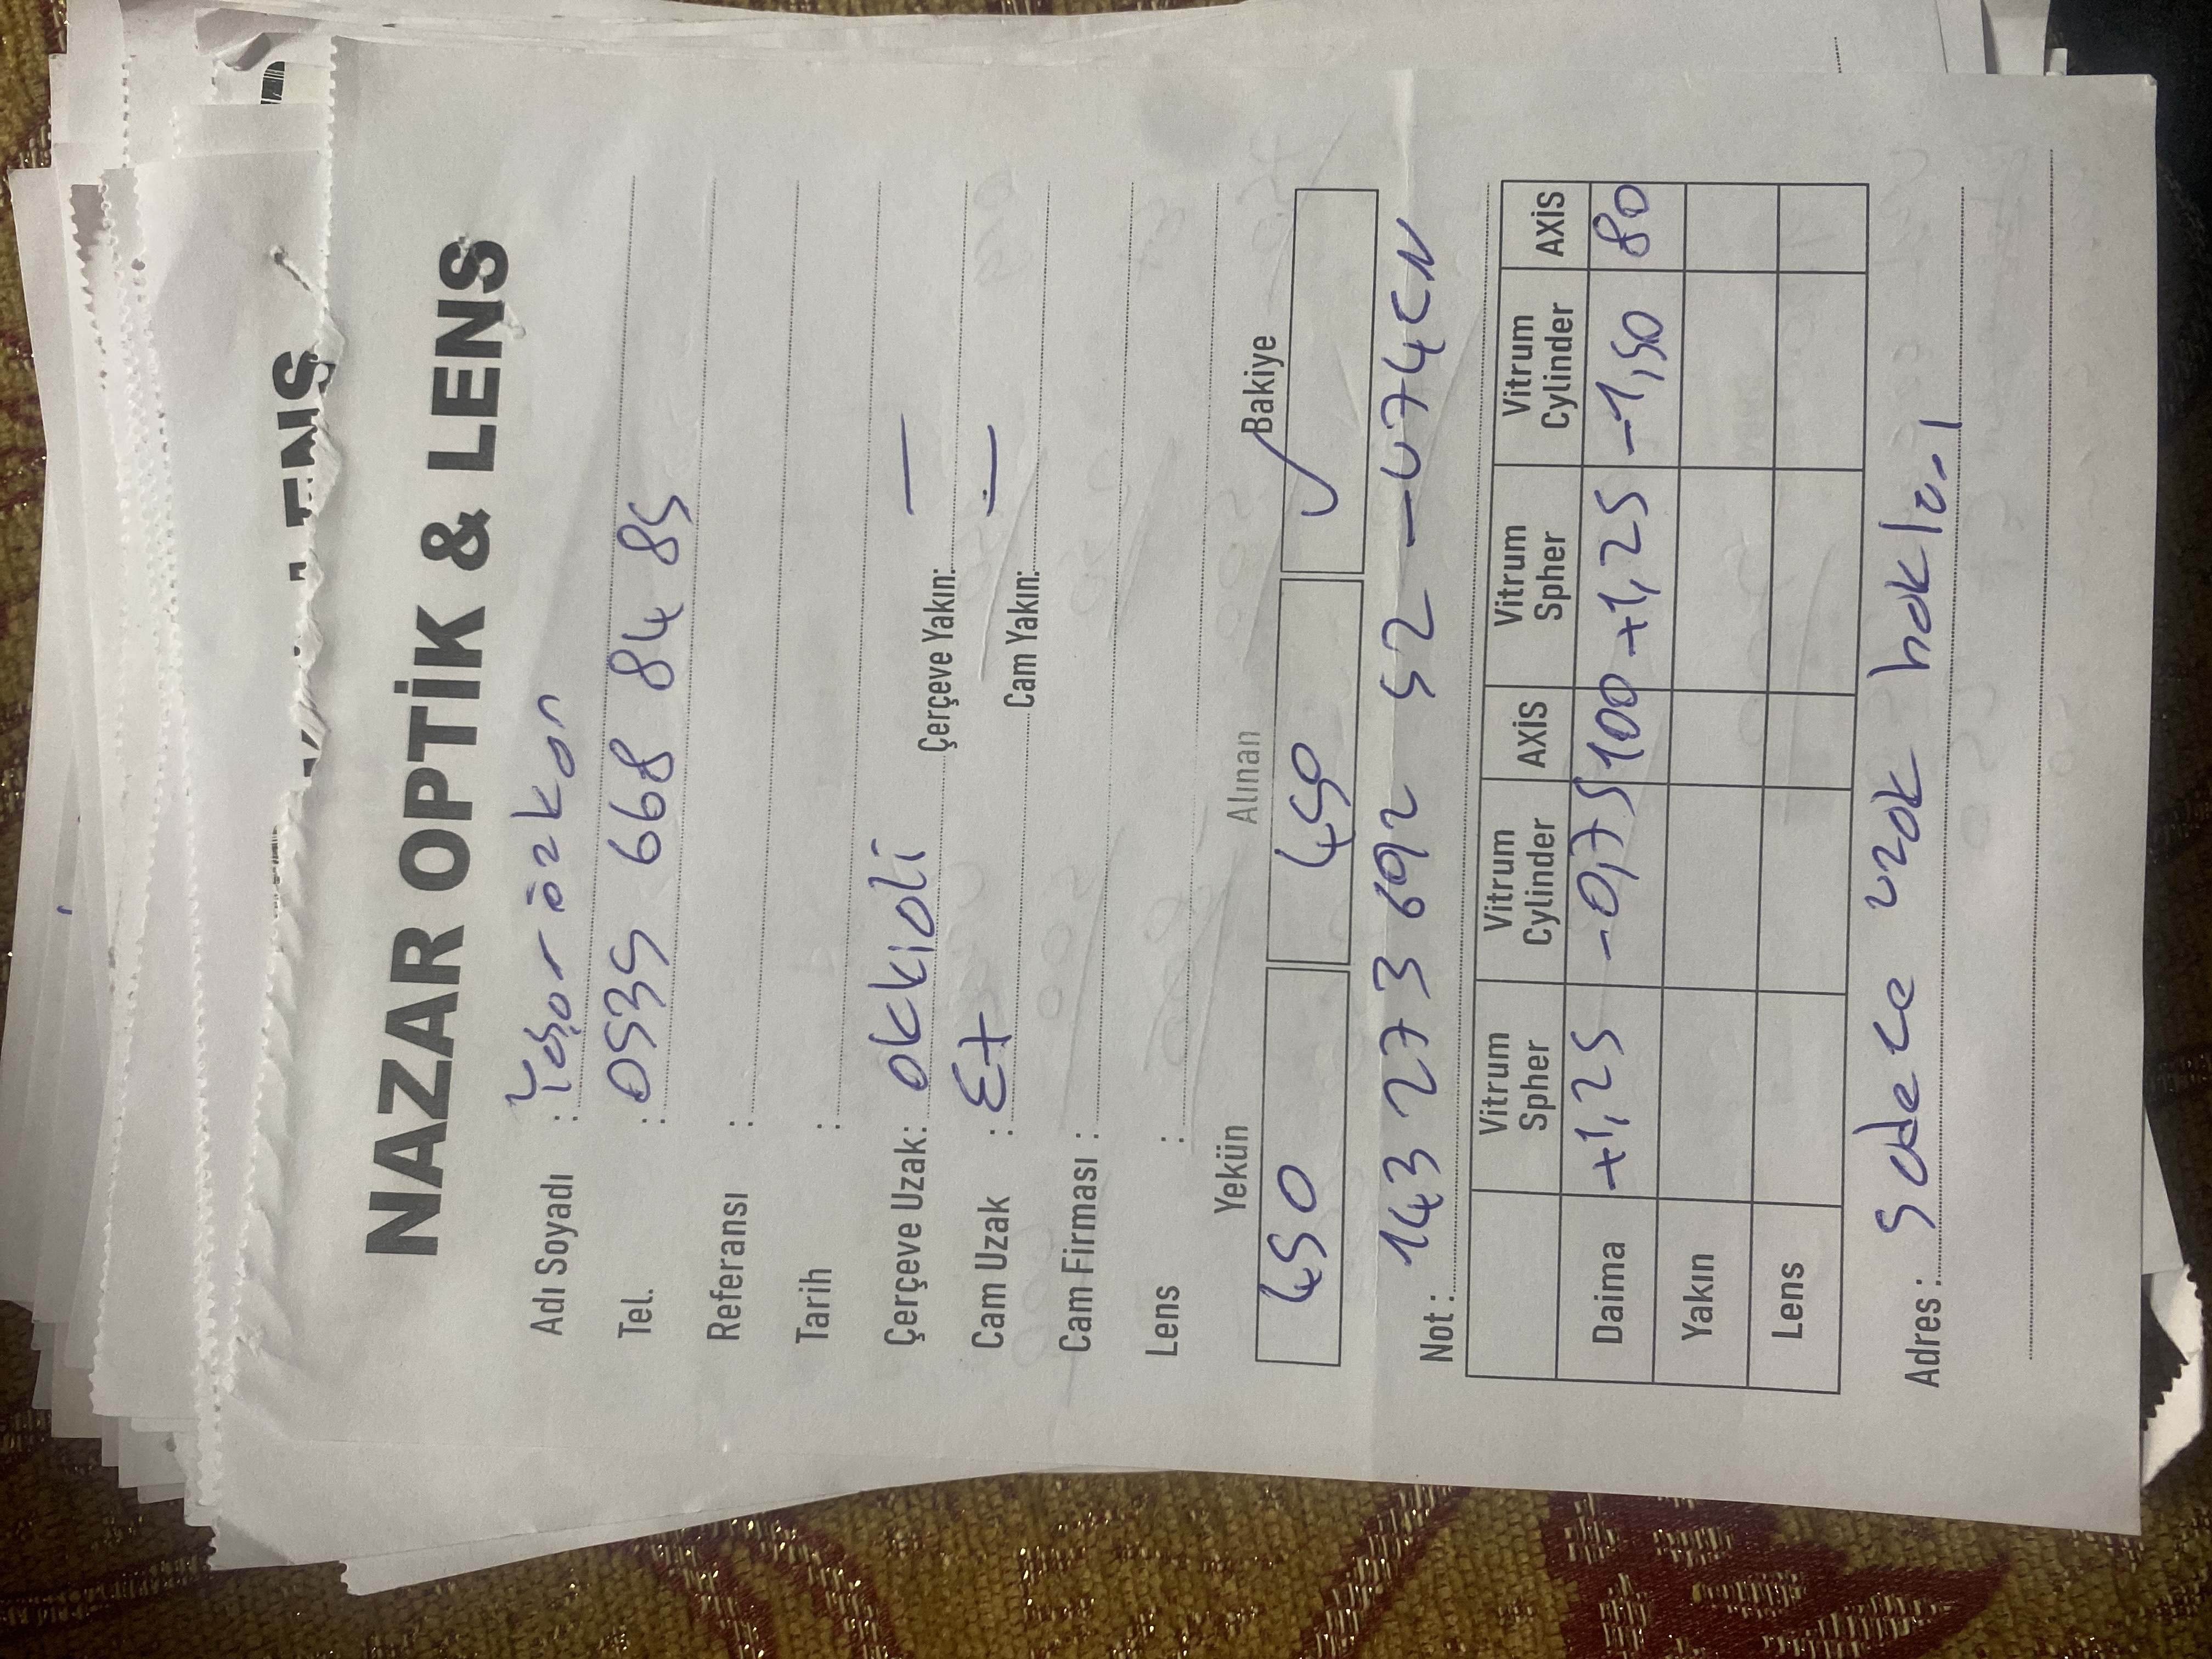 LENS
NAZAR OPTİK & LENS
Adı Soyadı : Yaşar özkan
Tel. : 0535 668 84 85
Referansı :
Tarih :
Çerçeve Uzak: okkioli Çerçeve Yakın: —
Cam Uzak : Ex Cam Yakın: —
Cam Firması :
Lens :
Yekün Alınan Bakiye
450 450 ✓
Not : 143 273 692 52 - U74CN
Vitrum Spher Vitrum Cylinder AXİS Vitrum Spher Vitrum Cylinder AXİS
Daima +1,25 -0,75 100 +1,25 -1,50 80
Yakın
Lens
Adres : sadece uzak hakları